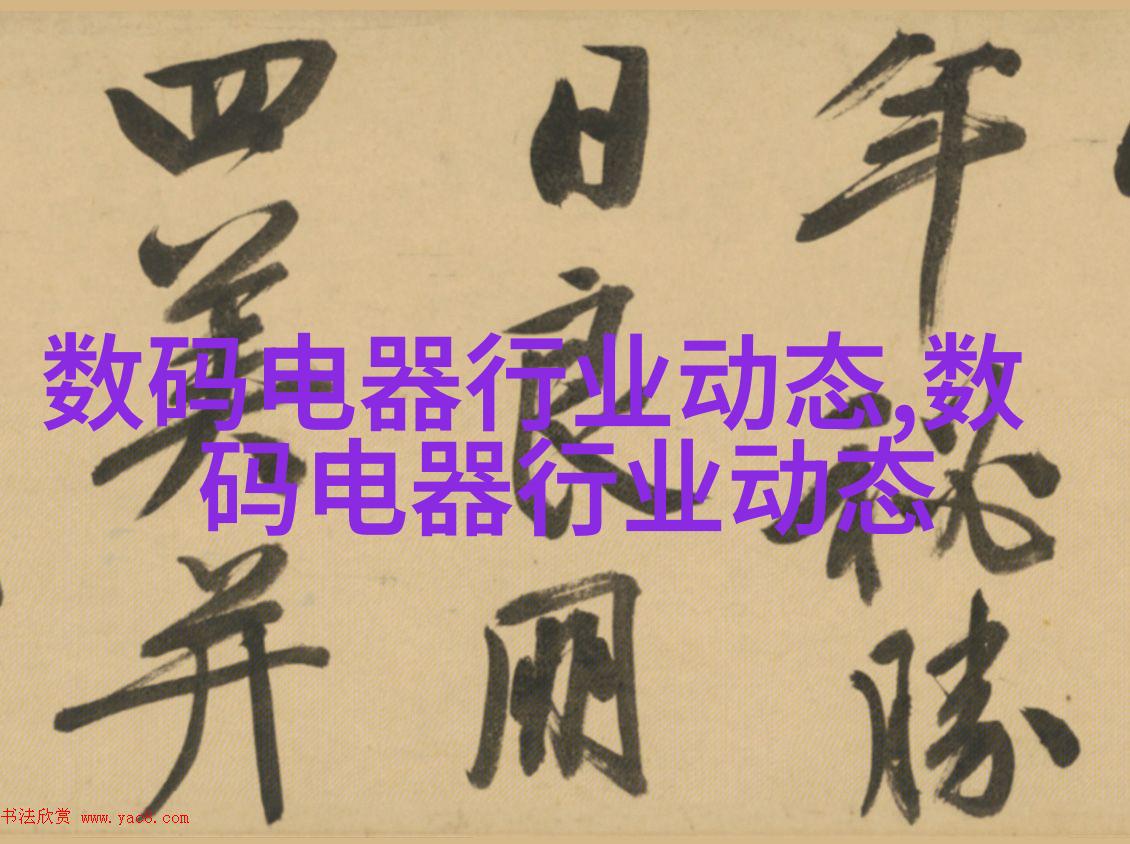 年勝
日良朋
四美并
数码电器行业动态,数
码电器行业动态
书法欣赏 www.yac8.com